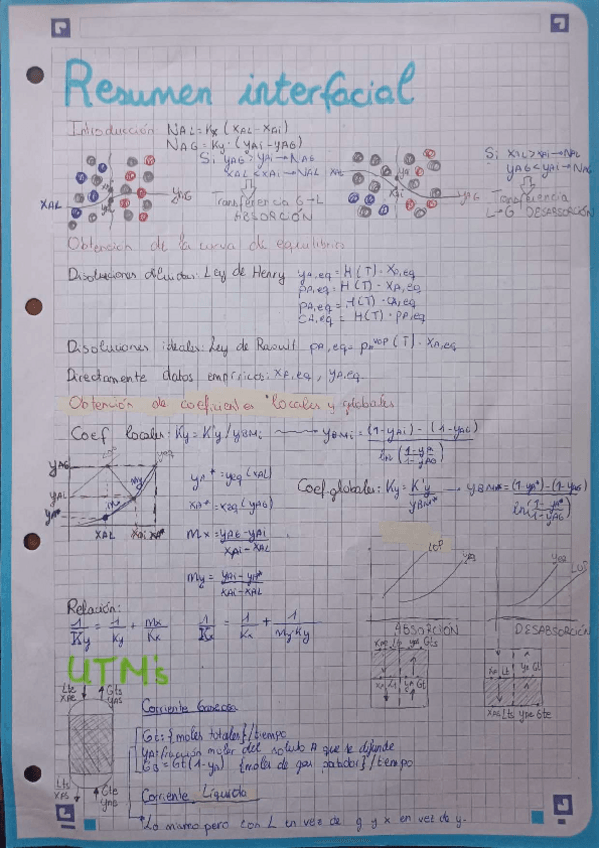 Resumen interfacial
Introducción NAL = Kx (XAL - XAi)
NAG = Ky · (yAi - yAG)
Si yAG > yAi → NAG
XAL < XAi → NAL
Transferencia G → L
ABSORCIÓN
XAL
yAG
Si XAL > XAi → NAL
yAG < yAi → NAG
Transferencia
L → G DESABSORCIÓN
Obtención de la curva de equilibrio
Disoluciones diluidas: Ley de Henry yA,eq = H(T) · XA,eq
PA,eq = H(T) · XA,eq
PA,eq = H(T) · CA,eq
CA,eq = H(T) · PA,eq
Disoluciones ideales: Ley de Raoult PA,eq = PAvap (T) · XA,eq
Directamente datos empíricos: XA,eq, yA,eq
Obtención de coeficientes locales y globales
Coef locales: Ky = K'y / yBMi yBMi = (1-yAi) - (1-yAG) / ln (1-yAi / 1-yAG)
yAG
yAi
yA*
XAL XAi XA*
yA* = yeq (XAL)
XA* = Xeq (yAG)
mx = yAG - yAi / XA* - XAi
my = yAi - yA* / XAi - XAL
Coef globales: Ky = K'y / yBM* → yBM* = (1-yA*) - (1-yAG) / ln (1-yA* / 1-yAG)
Relación:
1/Ky = 1/Ky + mx/Kx 1/Kx = 1/Kx + 1/my·Ky
LOP
yeq
ABSORCIÓN
yeq
LOP
DESABSORCIÓN
UTM's
Lte Gts
XAe yAs
Lts Gte
XAs yAe
Corriente Gaseosa
Gt: {moles totales}/tiempo
yA: fracción molar del soluto A que se difunde
Gs = Gt (1-yA) {moles de gas portador}/tiempo
Corriente Líquida
Lo mismo pero con L en vez de g y x en vez de y.